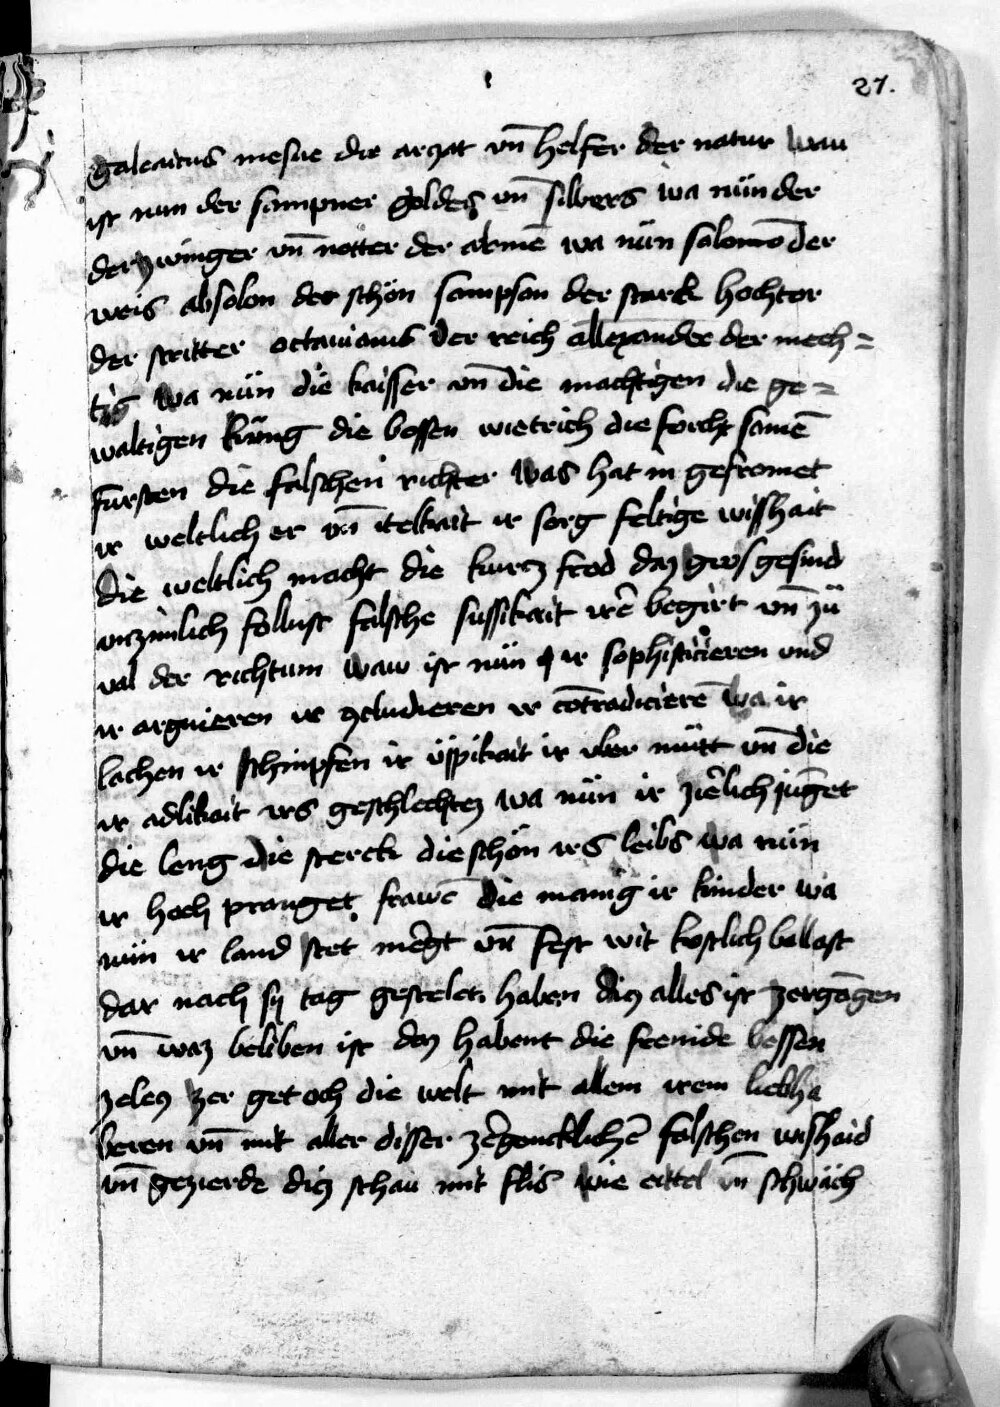 27.
galeaitus mesue die arczat vn̄ helfer der natur wau
ist nun der sampner goldes vn̄ silbers wa nün der
der zwinger vn̄ notter der armē wa nün salomō der
weis absolon der schön sampson der starck hochter
der stritter octauianus der reich allexander der mech=
tig wa nün die kaisser vn̄ die machtigen die ge=
waltigen küng die bossen wietrich die forcht samē
fursten die falschen richter was hat in gefromet
ir weltlich er vn̄ itelkait ir sorg feltige wisshait
die weltlich macht die kurcz frod daz gros gesind
vnzimlich follust falsche sussikait irē begirt vn̄ zü
val der richtum waw ist nün ir sophisticieren vnd
ir arguieren ir ꝯcludieren ir cōtradicierē wa ir
lachen ir schimpfen ir üppikait ir vber mütt vn̄ die
ir adlikait irs geschlechtz wa nün ir zierlich jūget
die leng die sterck die schön irs leibs wa nün
ir hoch pranget frawē die manig ir kinder wa
nün ir land stet mērgt vn̄ fest wit kostlich ballast
dar nach sy tag gestelet haben diz alles ist zergāgen
vn̄ waz beliben ist daz habent die fremde bessen
zeletz zer get och die welt mit allem irem liebha
beren vn̄ mit aller disser zērgoncklichē falschen wishaid
vn̄ gezierde diz schau mit flis wie eittel vn̄ schwäch